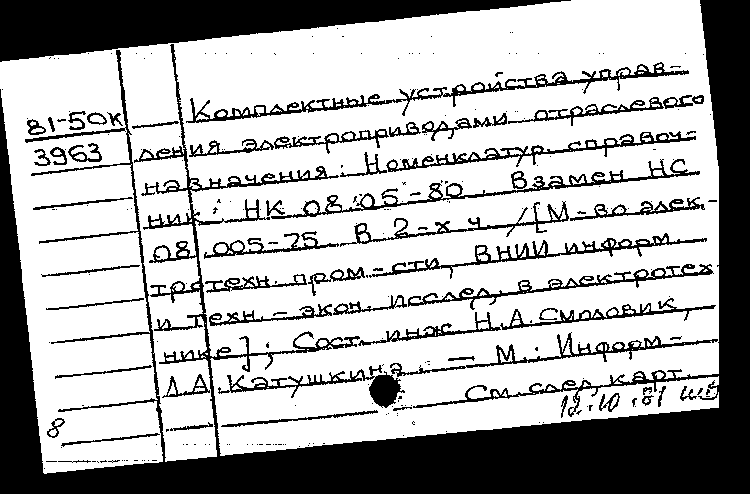 81-50к
3963
Комплектные устройства управ-
ления электроприводами отраслевого
назначения: Номенклатур. справоч-
ник: НК 08.05-80. Взамен НС
08.005-75. В 2-х ч. /[М-во элек-
тротехн. пром-сти, ВНИИ информ.
и техн.-экон. исслед. в электротех
нике]; Сост. инж Н.А.Смоловик,
Л.А.Катушкина. — М.: Информ-
См. след. карт.
12.10.81
8